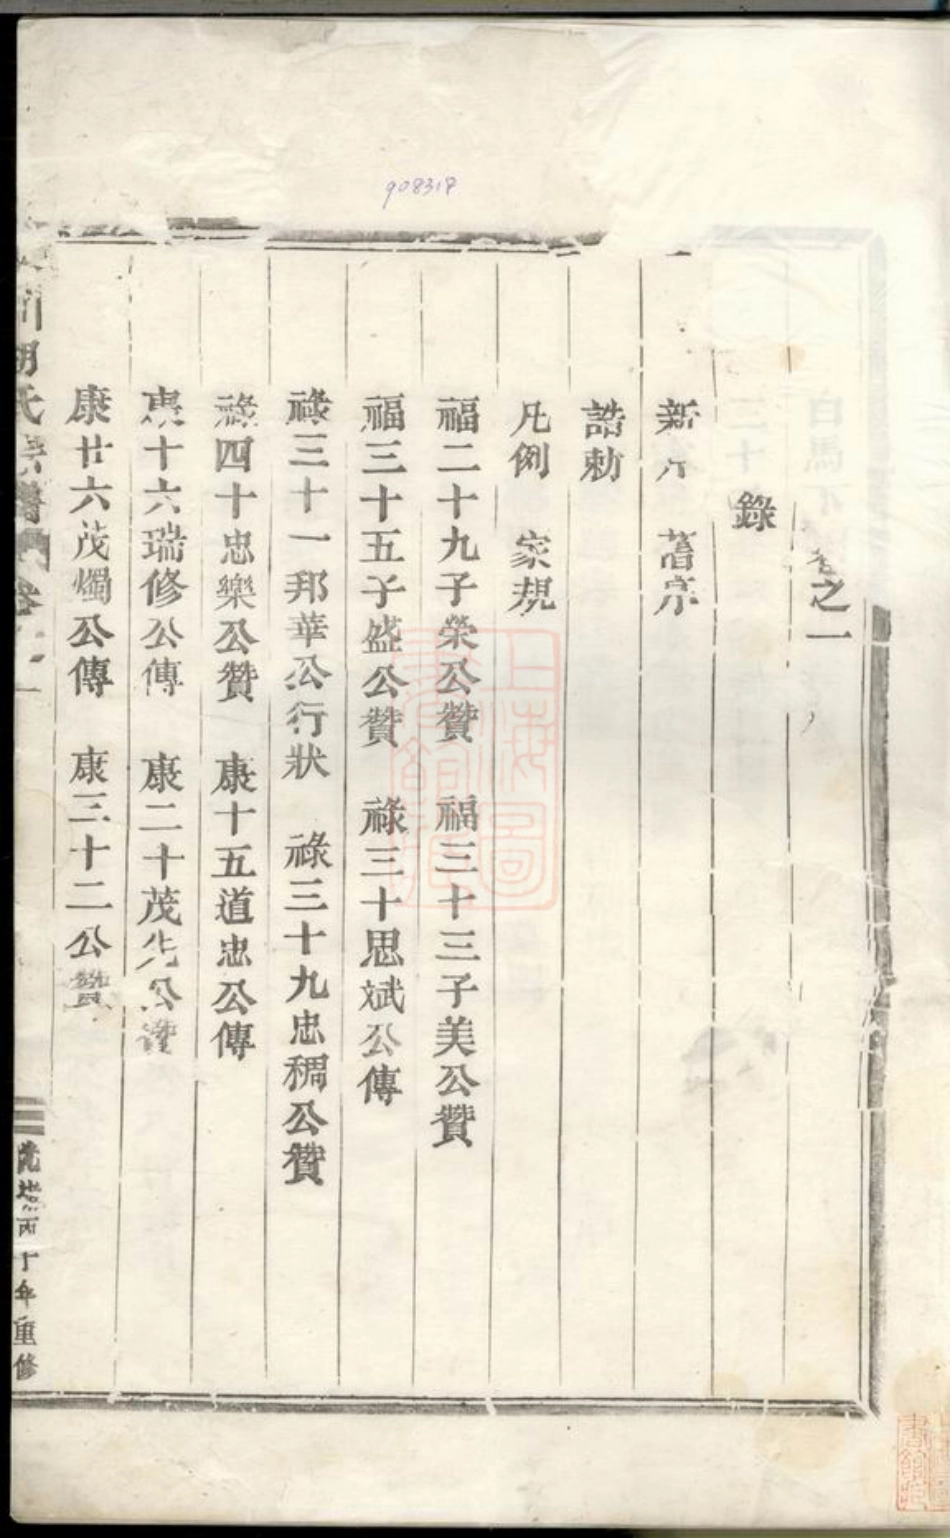 908318
卷之一
錄
新序 舊序
誥勅
凡例 家規
福二十九子榮公贊 福三十三子美公贊
福三十五子盛公贊 祿三十思斌公傳
祿三十一邦華公行狀 祿三十九忠稠公贊
祿四十忠樂公贊 康十五道忠公傳
康十六瑞修公傳 康二十茂先公贊
康廿六茂燭公傳 康三十二公贊
川胡氏宗譜 卷 一
年重修
上海圖書館藏